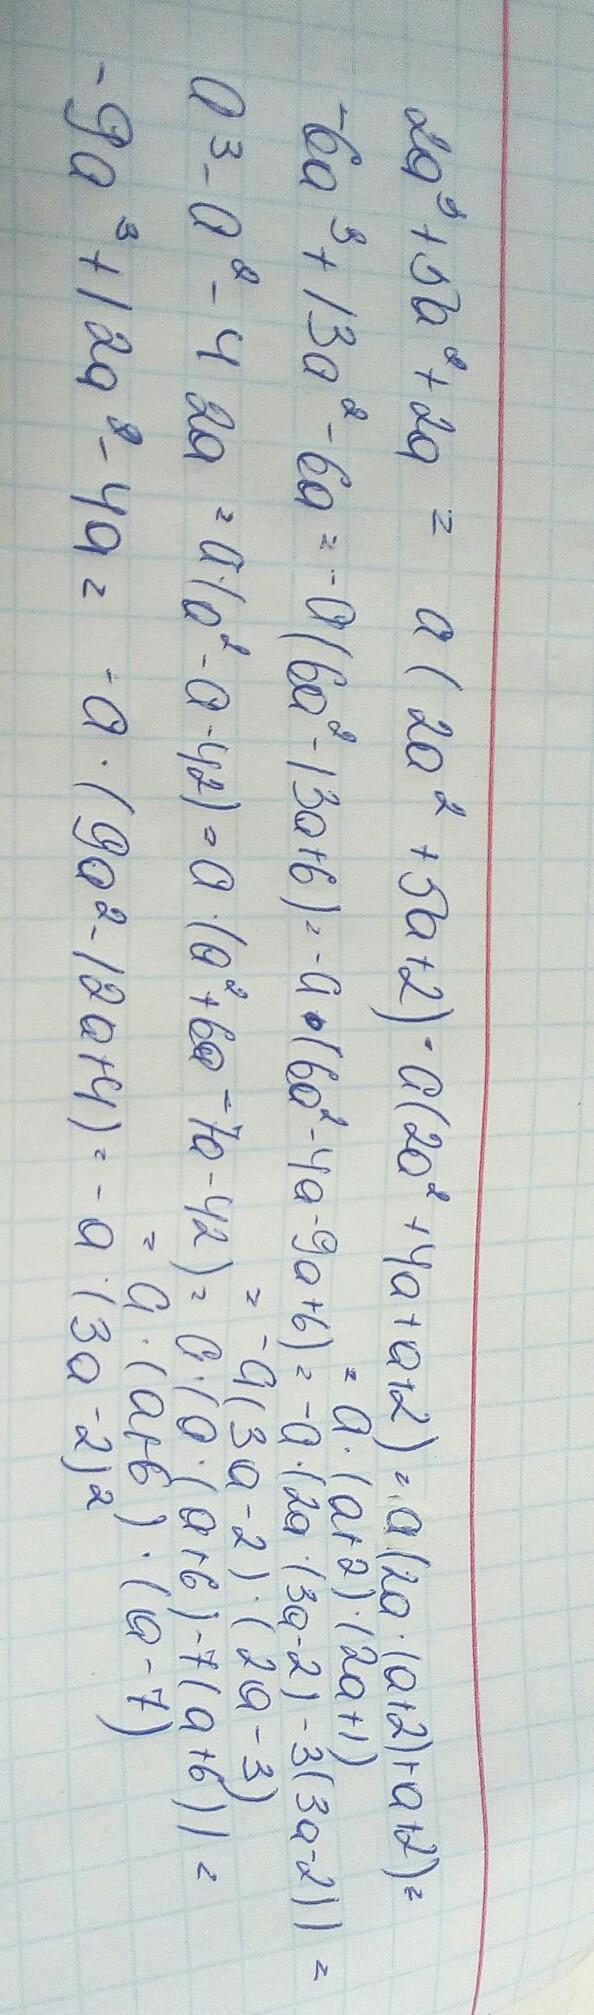 2a³+5a²+2a = a(2a²+5a+2)=a(2a²+4a+a+2)=a(2a·(a+2)+a+2)=
=a·(a+2)·(2a+1)
-6a³+13a²-6a=-a(6a²-13a+6)=-a·(6a²-4a-9a+6)=-a·(2a·(3a-2)-3(3a-2))=
=-a(3a-2)·(2a-3)
a³-a²-42a=a·(a²-a-42)=a·(a²+6a-7a-42)=a·(a·(a+6)-7(a+6))=
=a·(a+6)·(a-7)
-9a³+12a²-4a= -a·(9a²-12a+4)=-a·(3a-2)²